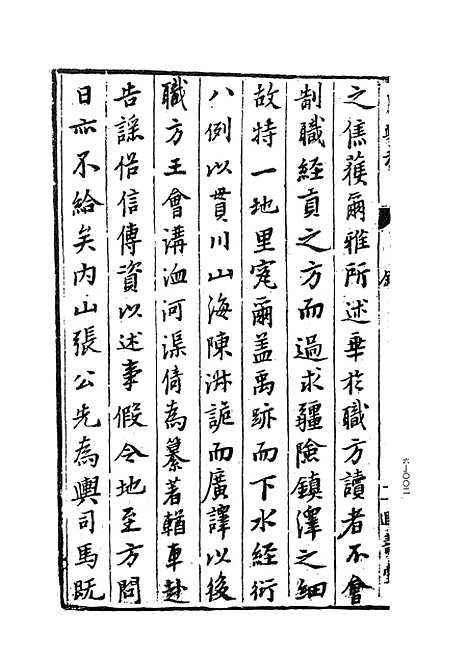 之焦蒦爾雅所述垂於職方讀者不會
制職經貢之方而過求疆險鎮澤之細
故特一地里寃爾盖禹跡而下水經衍
八例以貫川山海陳洪詭而廣譯以後
職方王會溝洫河渠倚為纂著輶車赴
告謡俗信傳資以述事假令地至方問
日亦不給矣内山張公先為輿司馬既
六一〇〇二